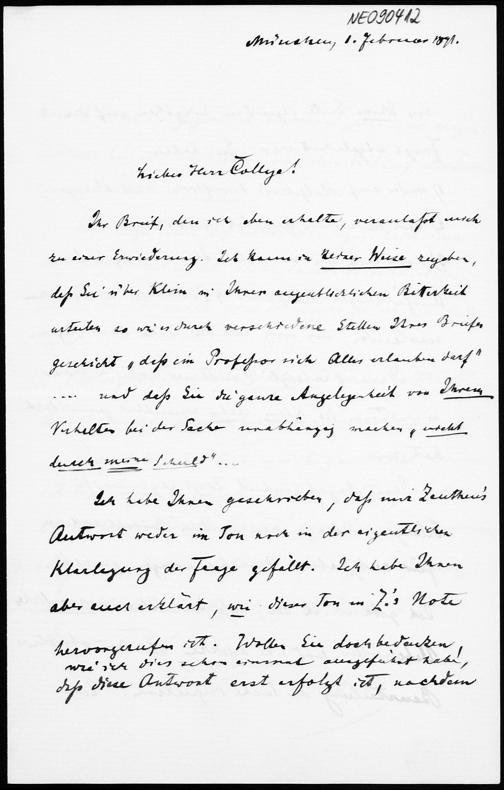 NEO90412
München, 1. Februar 1891.
Lieber Herr College!
Ihr Brief, den ich eben erhalte, veranlaßt mich
zu einer Erwiederung. Ich kann in keiner Weise zugeben,
daß Sie über Klein in Ihrer augenblicklichen Bitterkeit
urteilen so wie es durch verschiedene Stellen Ihres Briefes
geschieht „daß ein Professor sich Alles erlauben darf"
.... und daß Sie die ganze Angelegenheit von Ihrem
Verhalten bei der Sache unabhängig machen „nicht
durch meine Schuld" ...
Ich habe Ihnen geschrieben, daß mir Zeuthen's
Antwort weder im Ton noch in der eigentlichen
Klarlegung der Frage gefällt. Ich habe Ihnen
aber auch erklärt, wie dieser Ton in Z.'s Note
hervorgerufen ist. Wollen Sie doch bedenken,
wie ich dies schon einmal ausgeführt habe,
daß diese Antwort erst erfolgt ist, nachdem